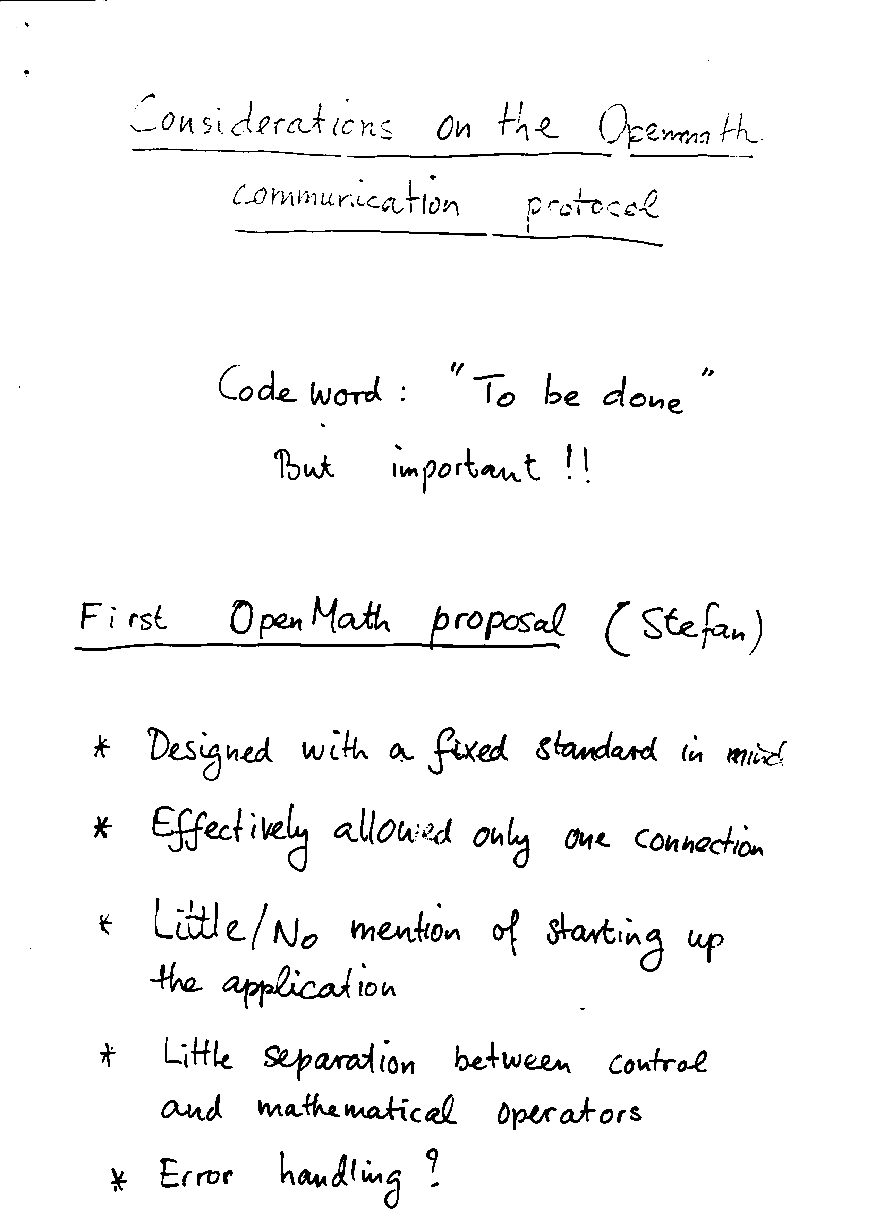 Considerations on the Openmath
communication protocol
Code word : "To be done"
But important !!
First OpenMath proposal (Stefan)
* Designed with a fixed standard in mind
* Effectively allowed only one connection
* Little/No mention of starting up
the application
* Little separation between control
and mathematical operators
* Error handling ?